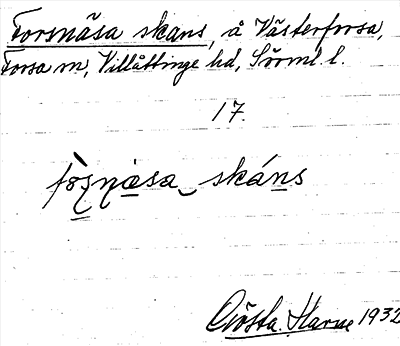 Forsnäsa skans, å Västerforsa,
Forsa sn, Villåttinge hd, Sörml. l.
17.
fòșṇäsa skáns
Gösta Harne 1932